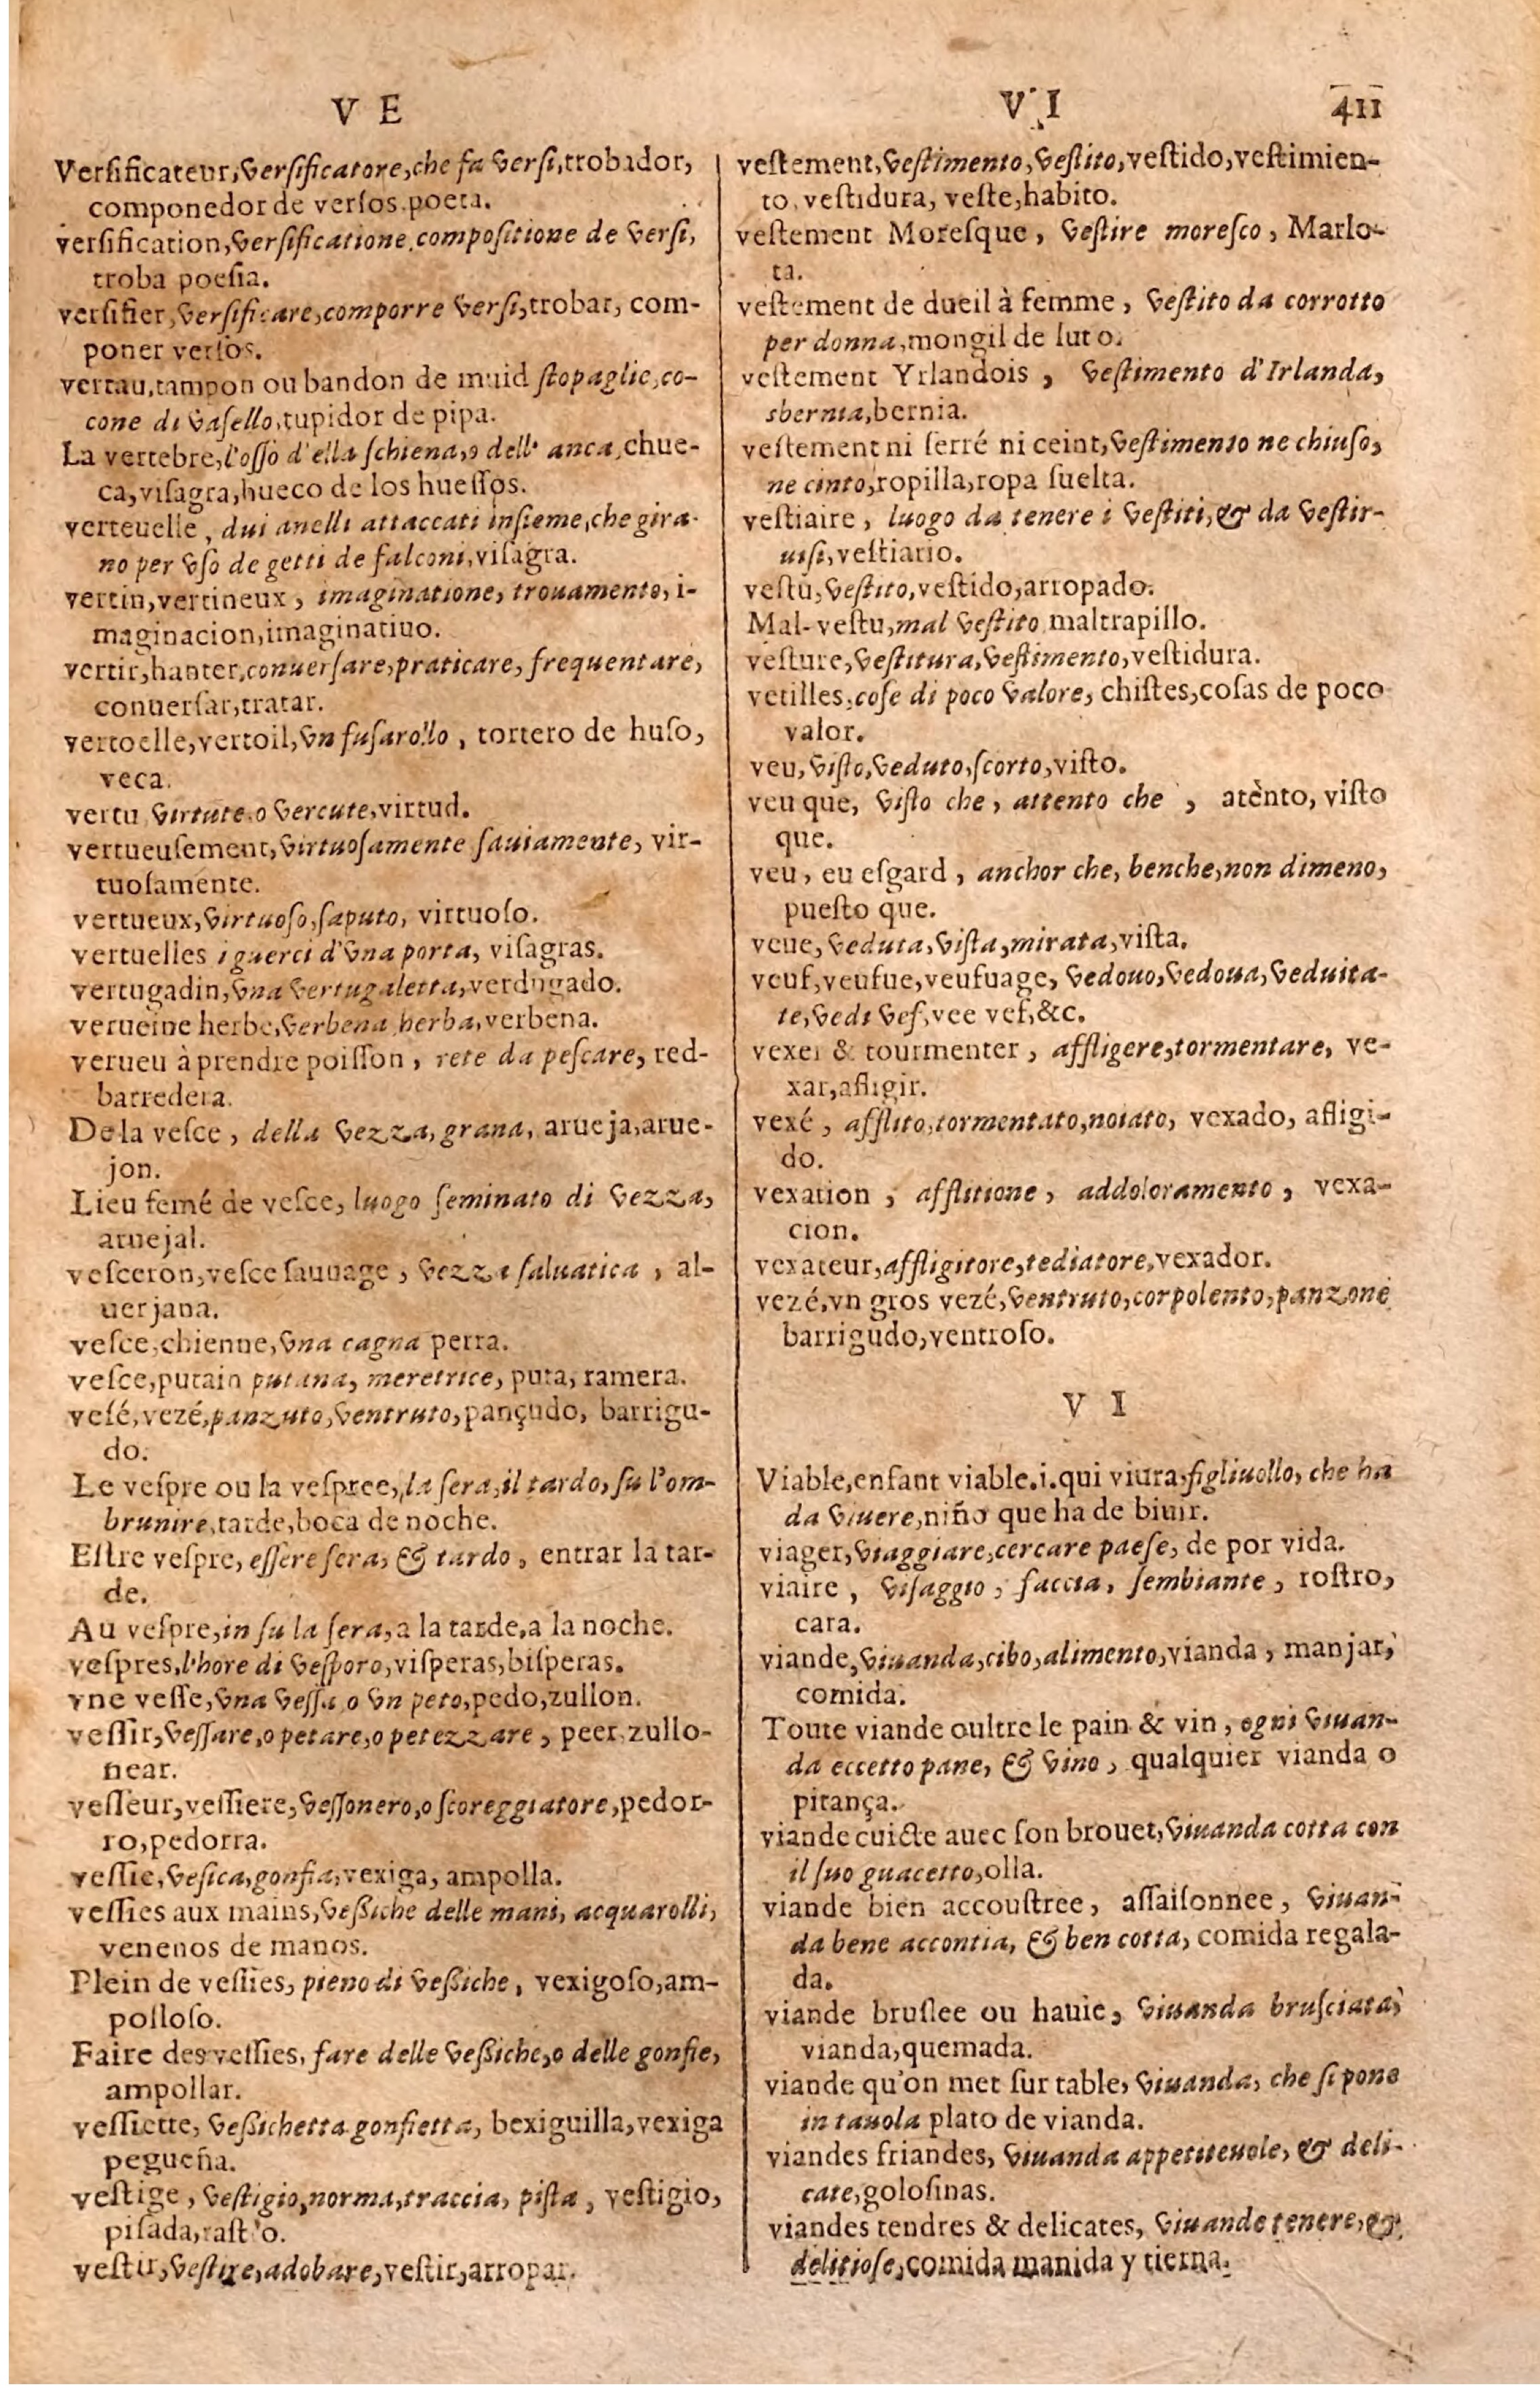 V E
Verſificateur, verſificatore, che fa verſi, trobador,
componedor de verſos. poeta.
verſification, verſificatione, compoſitione de verſi,
troba poeſia.
verſifier, verſificare, comporre verſi, trobar, com-
poner verſos.
vertau, tampon ou bandon de muid ſtopaglie, co-
cone di vaſello, tupidor de pipa.
La vertebre, l'oſſo d'ella ſchiena, o dell' anca, chue-
ca, viſagra, hueco de los hueſſos.
verteuelle, dui anelli attaccati inſieme, che gira-
no per vſo de getti de falconi, viſagra.
vertin, vertineux, imaginatione, trouamento, i-
maginacion, imaginatiuo.
vertir, hanter, conuerſare, praticare, frequentare,
conuerſar, tratar.
vertoelle, vertoil, vn fuſarollo, tortero de huſo,
veca.
vertu virtute, o vercute, virtud.
vertueuſement, virtuoſamente ſauiamente, vir-
tuoſamente.
vertueux, virtuoſo, ſaputo, virtuoſo.
vertuelles i guerci d'vna porta, viſagras.
vertugadin, vna vertugaletta, verdugado.
verueine herbe, verbena herba, verbena.
verueu à prendre poiſſon, rete da peſcare, red-
barredera.
De la veſce, della vezza, grana, arueja, arue-
jon.
Lieu ſemé de veſce, luogo ſeminato di vezza,
aruejal.
veſceron, veſce ſauuage, vezza ſaluatica, al-
uerjana.
veſce, chienne, vna cagna perra.
veſce, putain putana, meretrice, puta, ramera.
veſé, vezé, panzuto, ventruto, pançudo, barrigu-
do.
Le veſpre ou la veſpree, la ſera, il tardo, ſu l'om-
brunire, tarde, boca de noche.
Eſtre veſpre, eſſere ſera, & tardo, entrar la tar-
de.
Au veſpre, in ſu la ſera, a la tarde, a la noche.
veſpres, l'hore di veſporo, viſperas, biſperas.
vne veſſe, vna veſſa o vn peto, pedo, zullon.
veſſir, veſſare, o petare, o petezzare, peer, zullo-
near.
veſſeur, veſſiere, veſſonero, o ſcoreggiatore, pedor-
ro, pedorra.
veſſie, veſica, gonfia, vexiga, ampolla.
veſſies aux mains, veßiche delle mani, acquarolli,
venenos de manos.
Plein de veſſies, pieno di veßiche, vexigoſo, am-
polloſo.
Faire des veſſies, fare delle veßiche, o delle gonfie,
ampollar.
veſſiette, veßichetta gonfietta, bexiguilla, vexiga
pegueña.
veſtige, veſtigio, norma, traccia, piſta, veſtigio,
piſada, raſtro.
veſtir, veſtire, adobare, veſtir, arropar.
V I 411
veſtement, veſtimento, veſtito, veſtido, veſtimien-
to, veſtidura, veſte, habito.
veſtement Moreſque, veſtire moreſco, Marlo-
ta.
veſtement de dueil à femme, veſtito da corrotto
per donna, mongil de luto.
veſtement Yrlandois, veſtimento d'Irlanda,
sbernia, bernia.
veſtement ni ſerré ni ceint, veſtimento ne chiuſo,
ne cinto, ropilla, ropa ſuelta.
veſtiaire, luogo da tenere i veſtiti, & da veſtir-
uiſi, veſtiario.
veſtu, veſtito, veſtido, arropado.
Mal-veſtu, mal veſtito maltrapillo.
veſture, veſtitura, veſtimento, veſtidura.
vetilles, coſe di poco valore, chiſtes, coſas de poco
valor.
veu, viſto, veduto, ſcorto, viſto.
veu que, viſto che, attento che, atènto, viſto
que.
veu, eu eſgard, anchor che, benche, non dimeno,
pueſto que.
veue, veduta, viſta, mirata, viſta.
veuf, veufue, veufuage, vedouo, vedoua, veduita-
te, vedi vef, vee vef, &c.
vexer & tourmenter, affligere, tormentare, ve-
xar, afligir.
vexé, afflito, tormentato, noiato, vexado, afligi-
do.
vexation, afflitione, addoloramento, vexa-
cion.
vexateur, affligitore, tediatore, vexador.
vezé, vn gros vezé, ventruto, corpolento, panzone
barrigudo, ventroſo.
V I
Viable, enfant viable. i. qui viura, figliuollo, che ha
da viuere, niño que ha de biuir.
viager, viaggiare, cercare paeſe, de por vida.
viaire, viſaggio, faccia, ſembiante, roſtro,
cara.
viande, viuanda, cibo, alimento, vianda, manjar,
comida.
Toute viande oultre le pain & vin, ogni viuan-
da eccetto pane, & vino, qualquier vianda o
pitança.
viande cuicte auec ſon brouet, viuanda cotta con
il ſuo guacetto, olla.
viande bien accouſtree, aſſaiſonnee, viuan-
da bene accontia, & ben cotta, comida regala-
da.
viande bruſlee ou hauie, viuanda bruſciata,
vianda, quemada.
viande qu'on met ſur table, viuanda, che ſi pone
in tauola plato de vianda.
viandes friandes, viuanda appetiteuole, & deli-
cate, goloſinas.
viandes tendres & delicates, viuande tenere, &
delitioſe, comida manida y tierna.